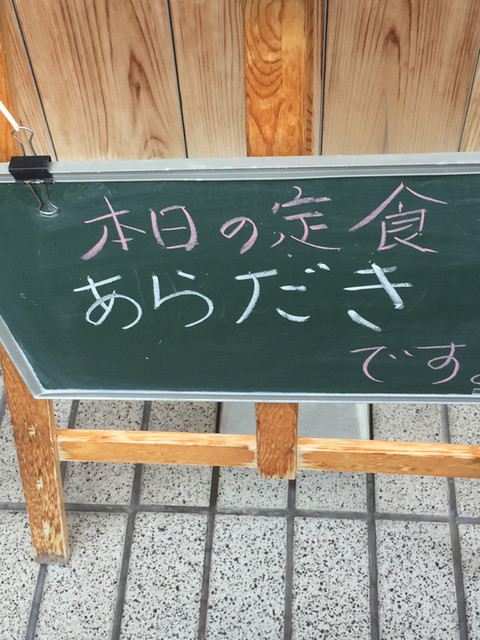 本日の定食
あらだき
です。